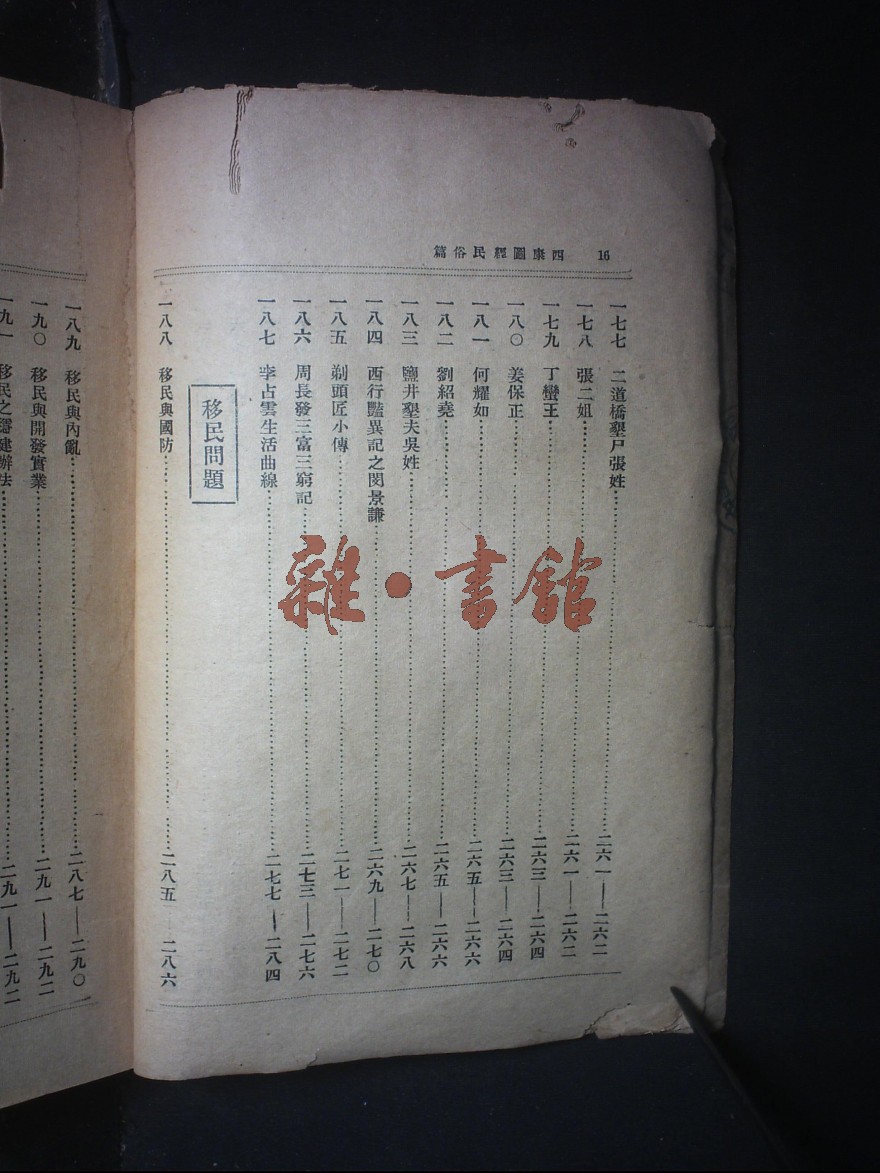 16 西康圖經民俗篇
一七七 二道橋墾戶張姓……二六一——二六二
一七八 張二姐……二六一——二六二
一七九 丁蠻王……二六三——二六四
一八〇 姜保正……二六三——二六四
一八一 何耀如……二六五——二六六
一八二 劉紹堯……二六五——二六六
一八三 鹽井墾夫吳姓……二六七——二六八
一八四 西行豔異記之閔景謙……二六九——二七〇
一八五 剃頭匠小傳……二七一——二七二
一八六 周長發三富三窮記……二七三——二七六
一八七 李占雲生活曲線……二七七——二八四
移民問題
一八八 移民與國防……二八五——二八六
一八九 移民與內亂……二八七——二九〇
一九〇 移民與開發實業……二九一——二九二
一九一 移民之穩健辦法……二九一——二九二
雜·書館